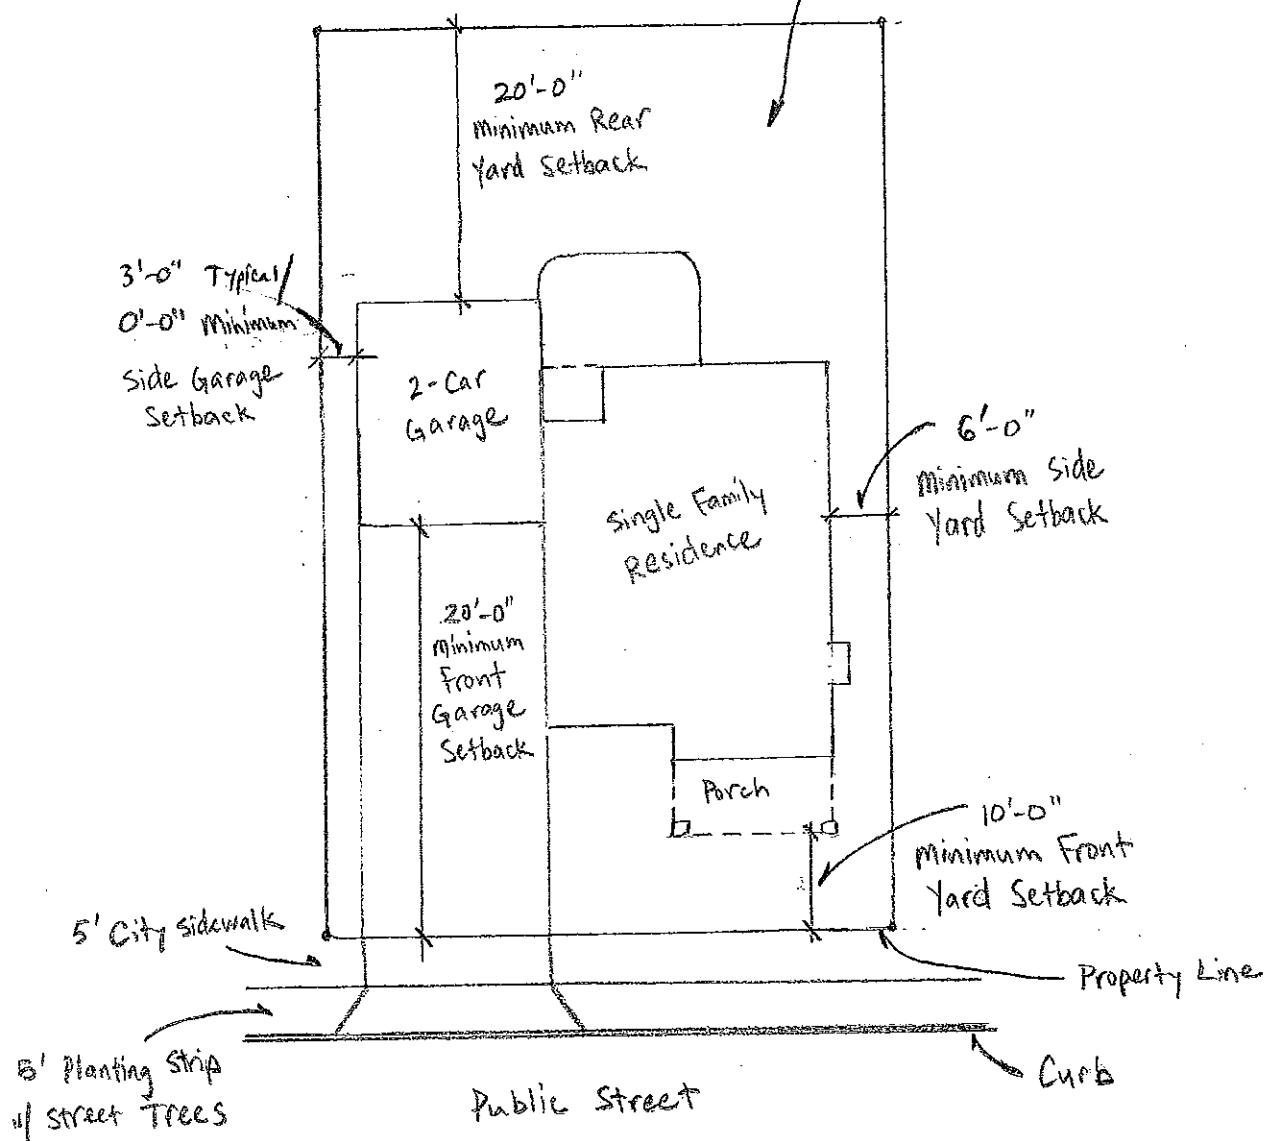 20'-0"
Minimum Rear
Yard Setback
3'-0" Typical/
0'-0" Minimum
Side Garage
Setback
2-Car
Garage
6'-0"
Minimum Side
Yard Setback
Single Family
Residence
20'-0"
Minimum
Front
Garage
Setback
Porch
10'-0"
Minimum Front
Yard Setback
5' City Sidewalk
Property Line
5' Planting Strip
w/ Street Trees
Curb
Public Street